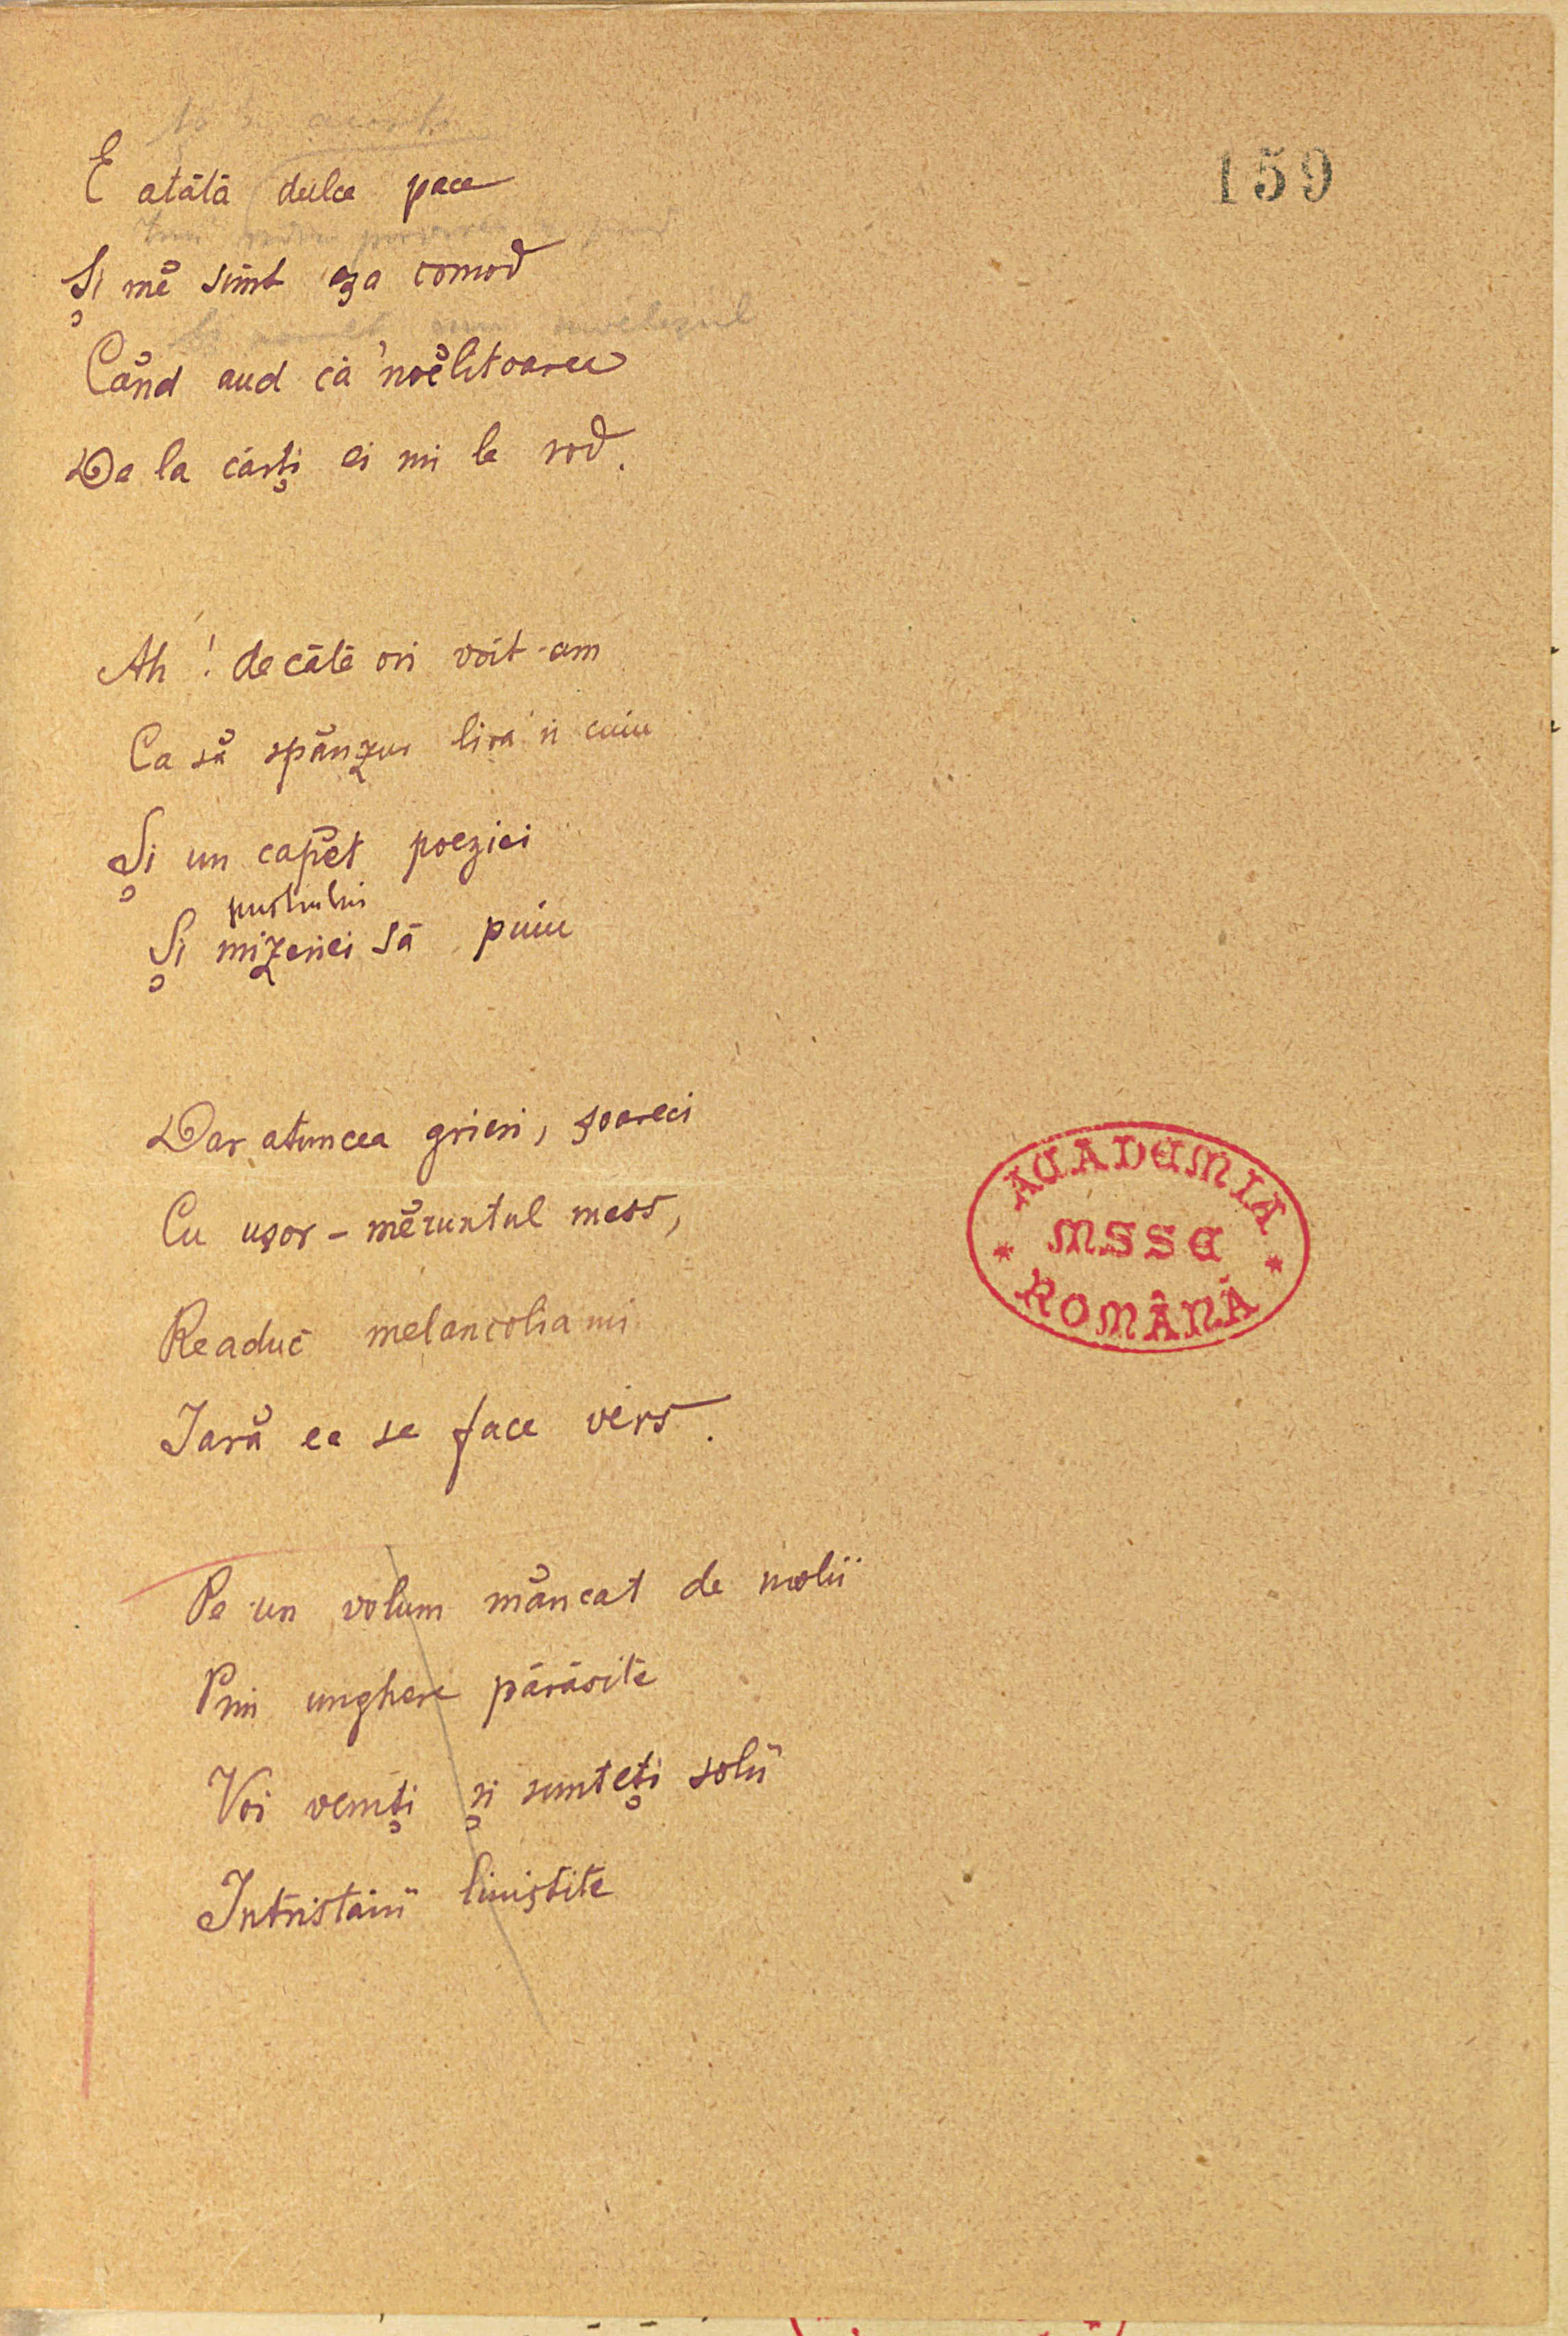 159
E atâtă dulce pace
Și mĕ simt așa comod
Când aud că 'nvĕlitoarea
De la cărți ei mi le rod.
Ah! de câte ori voit-am
Ca să spânzur lira 'n cuiu
Și un capĕt poeziei
pustiului
Și mizeriei să puiu
Dar atuncea grieri, șoareci
Cu ușor-mĕruntul mers,
Readuc melancolia mi
Iară ea se face vers.
Pe un volum mâncat de molii
Prin unghere părăsite
Voi veniți și sunteți solii
Intristării liniștite
ACADEMIA
MSSE
ROMÂNĂ